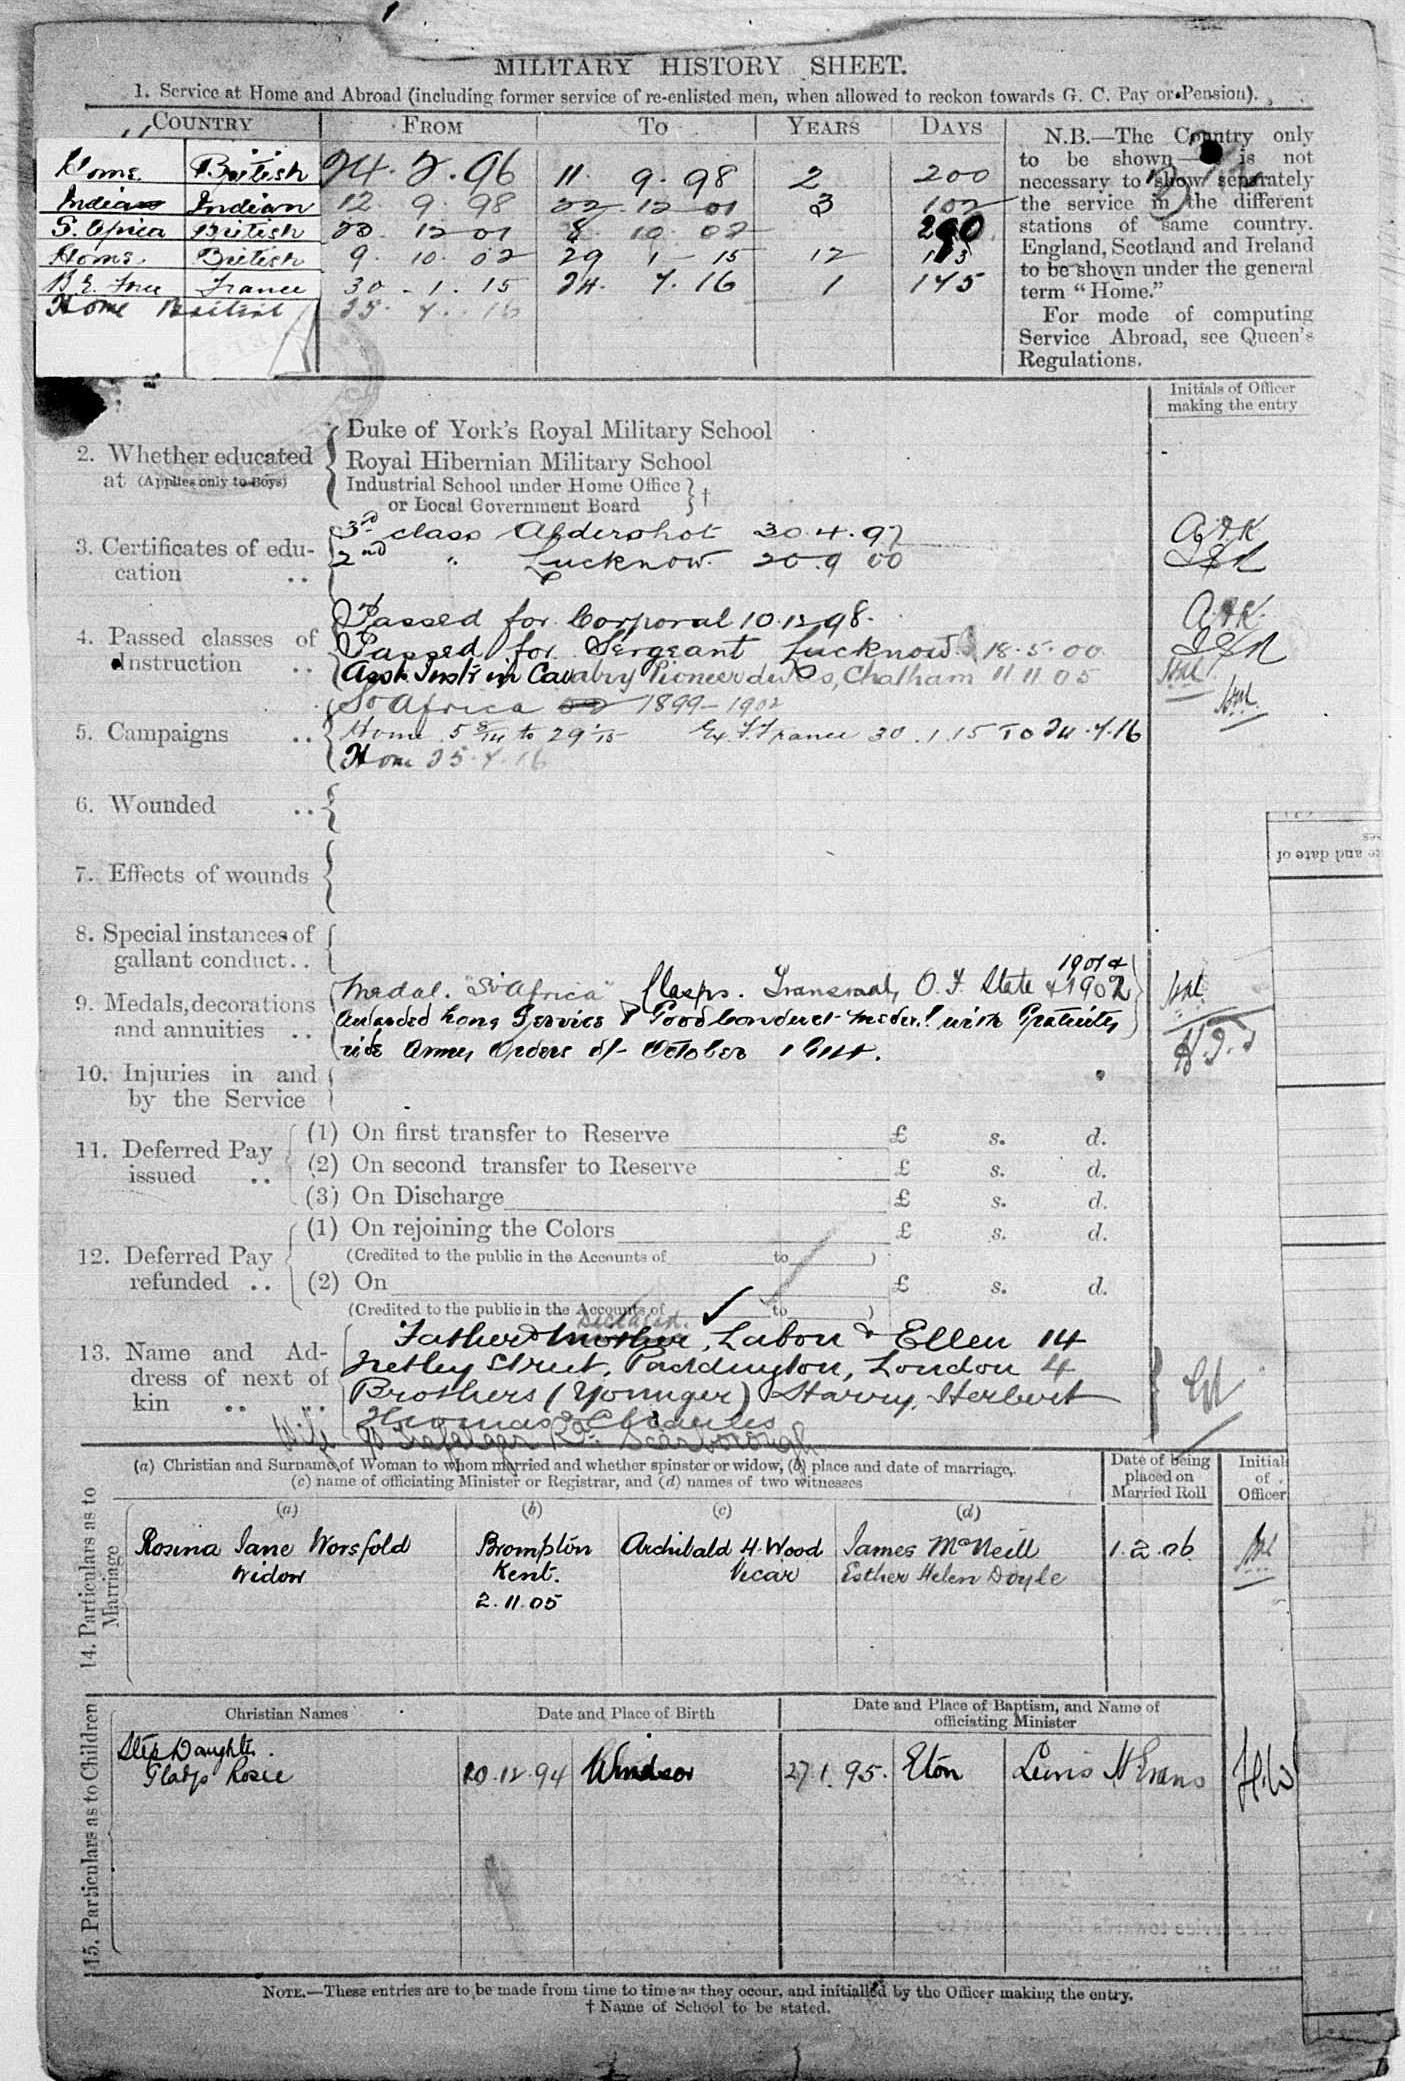 MILITARY HISTORY SHEET.
1. Service at Home and Abroad (including former service of re-enlisted men, when allowed to reckon towards G. C. Pay or Pension).
COUNTRY FROM TO YEARS DAYS
Home British 24. 2. 96 11. 9. 98 2 200
India Indian 12 9. 98 22. 12 01 3 102
S. Africa British 23. 12 01 8 10. 02 290
Home. British 9. 10. 02 29 1 - 15 12 113
B. E. Force France 30 - 1. 15 24. 7. 16 1 175
Home British 25. 7. 16
N.B.—The Country only
to be shown— is not
necessary to show separately
the service in the different
stations of same country.
England, Scotland and Ireland
to be shown under the general
term “Home.”
For mode of computing
Service Abroad, see Queen's
Regulations.
Initials of Officer
making the entry
2. Whether educated
at (Applies only to Boys)
Duke of York's Royal Military School
Royal Hibernian Military School
Industrial School under Home Office
or Local Government Board }†
3. Certificates of edu-
cation ..
3rd class Aldershot 30.4.97
2nd " Lucknow. 20.9 00
4. Passed classes of
Instruction ..
Passed for Corporal 10.12.98.
Passed for Sergeant Lucknow 18.5.00
Asst. Instr in Cavalry Pioneer duties, Chatham 11 11 05
5. Campaigns ..
So Africa 1899-1902
Home 5 8/14 to 29 1/15 Ex. F. France 30.1.15 To 24.7.16
Home 25.7.16
6. Wounded ..
7. Effects of wounds
8. Special instances of
gallant conduct..
9. Medals, decorations
and annuities ..
1901 &
Medal. "So Africa" Clasps. Transvaal, O. F. State & 1902
Awarded Long Service & Good Conduct medal with Gratuity
vide Army Orders of October 1914.
10. Injuries in and
by the Service
11. Deferred Pay
issued ..
(1) On first transfer to Reserve £ s. d.
(2) On second transfer to Reserve £ s. d.
(3) On Discharge £ s. d.
12. Deferred Pay
refunded ..
(1) On rejoining the Colors £ s. d.
(Credited to the public in the Accounts of to )
(2) On £ s. d.
(Credited to the public in the Accounts of to )
13. Name and Ad-
dress of next of
kin .. ..
Deceased.
Father & Mother, Labon & Ellen 14
Netley Street, Paddington, London 4
Brothers (Younger) Harry, Herbert
Thomas & Charles
Wife Trafalgar Rd. Scarborough
14. Particulars as to Marriage
(a) Christian and Surname of Woman to whom married and whether spinster or widow, (b) place and date of marriage,
(c) name of officiating Minister or Registrar, and (d) names of two witnesses
Date of being
placed on
Married Roll
Initials
of
Officer
(a) (b) (c) (d)
Rosina Jane Worsfold Brompton Archibald H. Wood James McNeill 1.2.06
Widow Kent. Vicar Esther Helen Doyle
2.11.05
15. Particulars as to Children
Christian Names Date and Place of Birth Date and Place of Baptism, and Name of
officiating Minister
Step Daughter.
Gladys Rosie 20.12.94 Windsor 27.1.95. Eton Lewis H Evans H.W
NOTE.—These entries are to be made from time to time as they occur, and initialled by the Officer making the entry.
† Name of School to be stated.